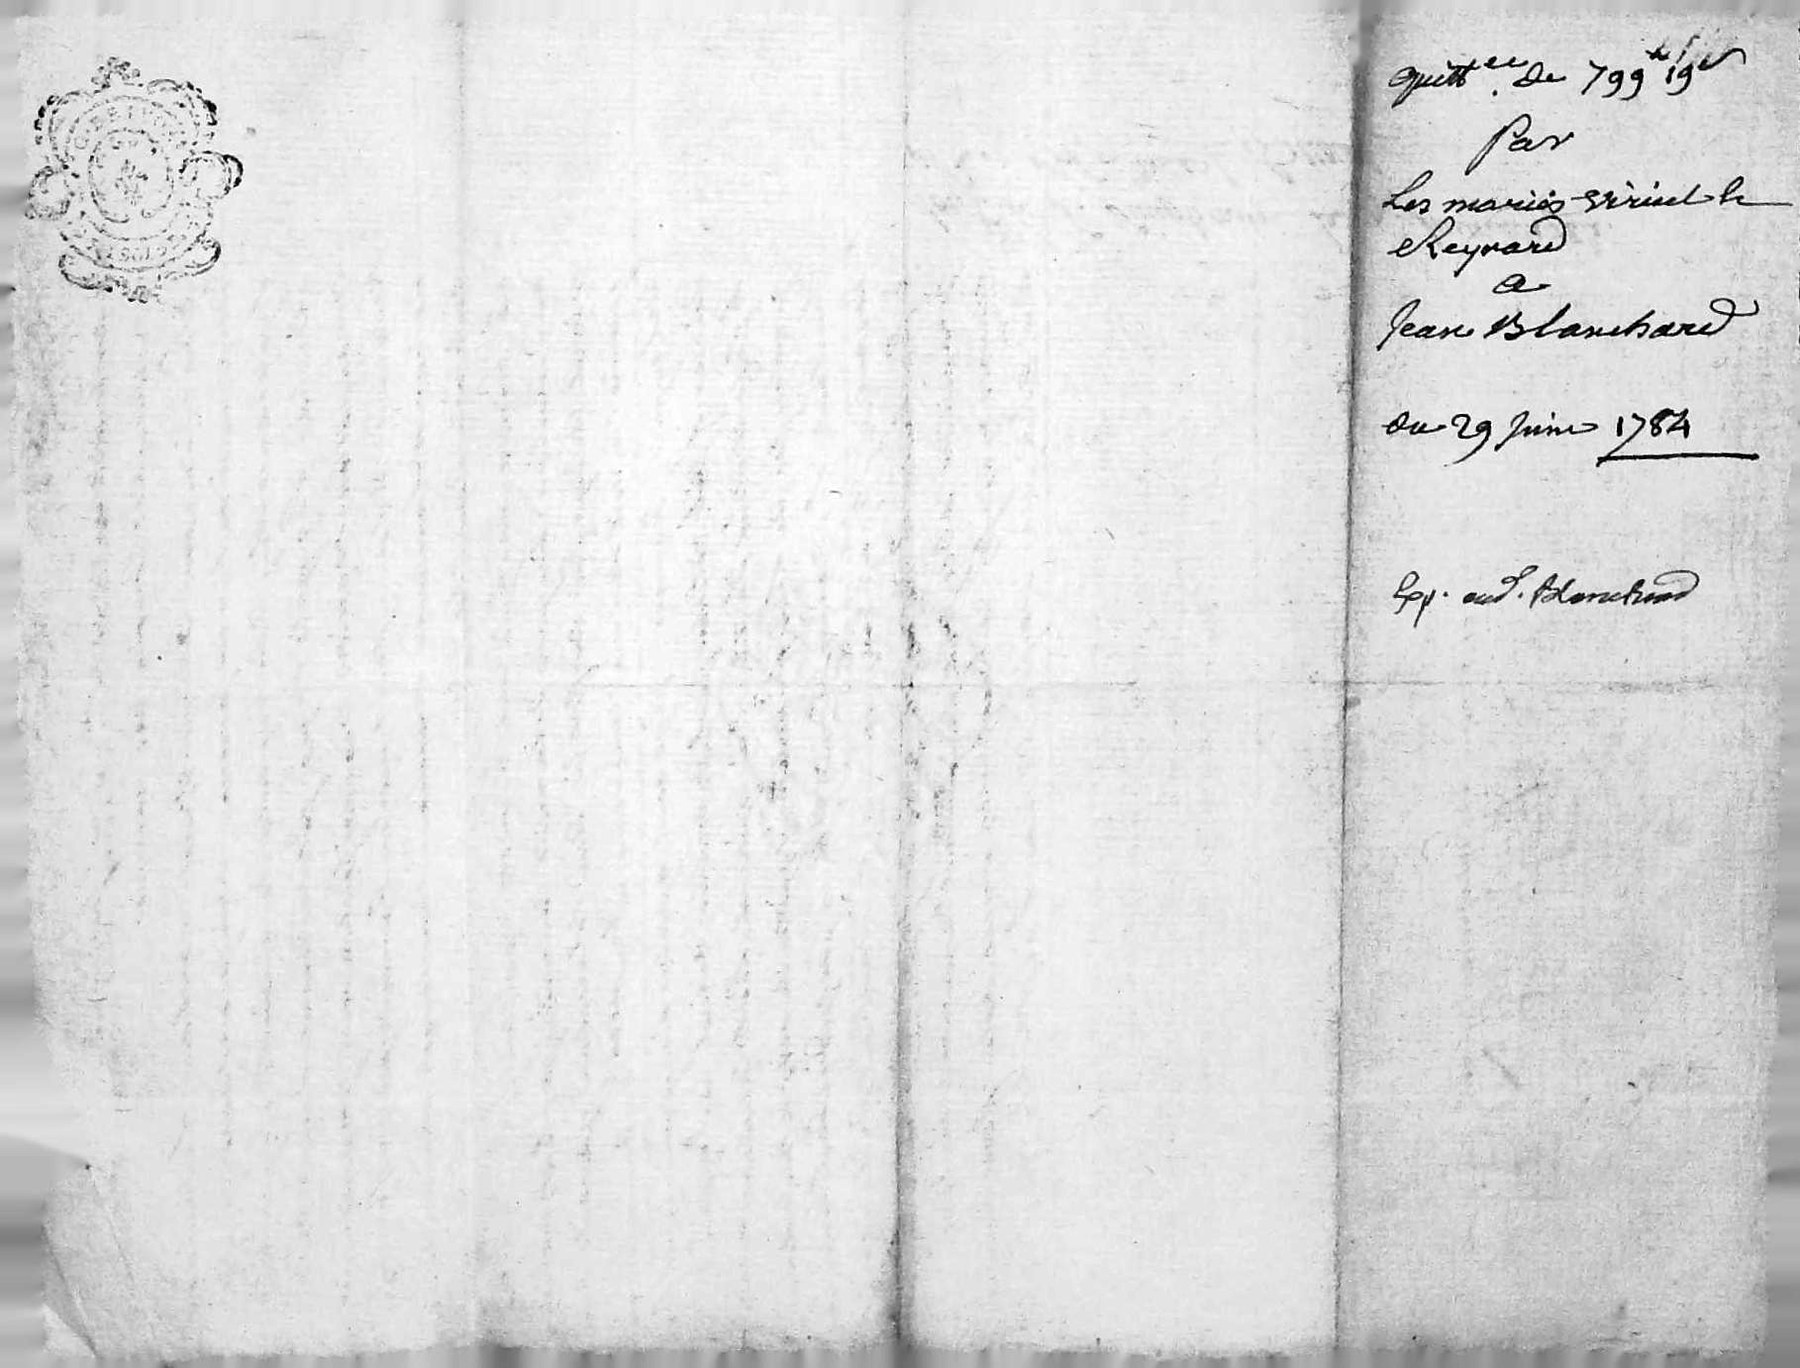 quitt.ce de 799# 19s
Par
Les mariés et
Reynard
a
Jean Blanchard
du 29 Juin 1784
Exp. aud. Blanchard